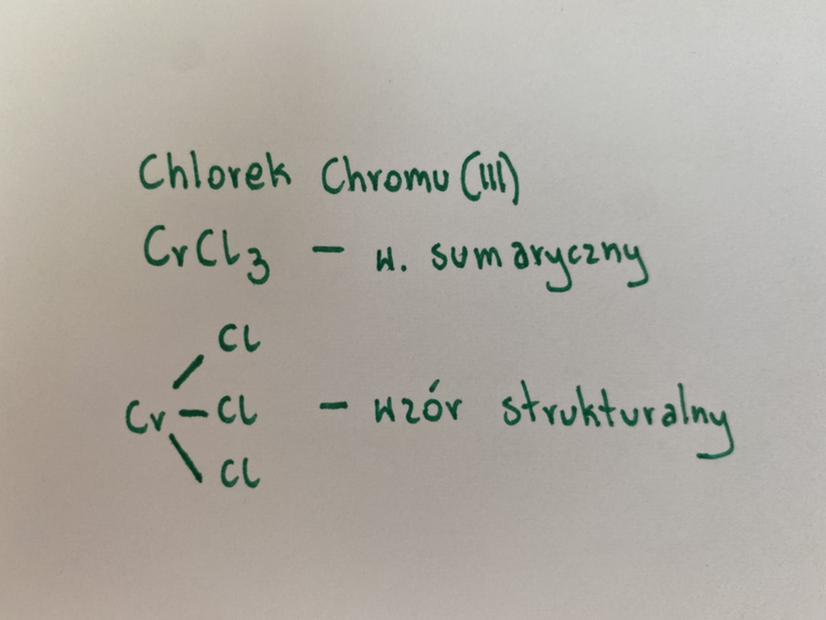 Chlorek Chromu (III)
CrCl3 – w. sumaryczny
Cl
Cr – Cl – wzór strukturalny
Cl